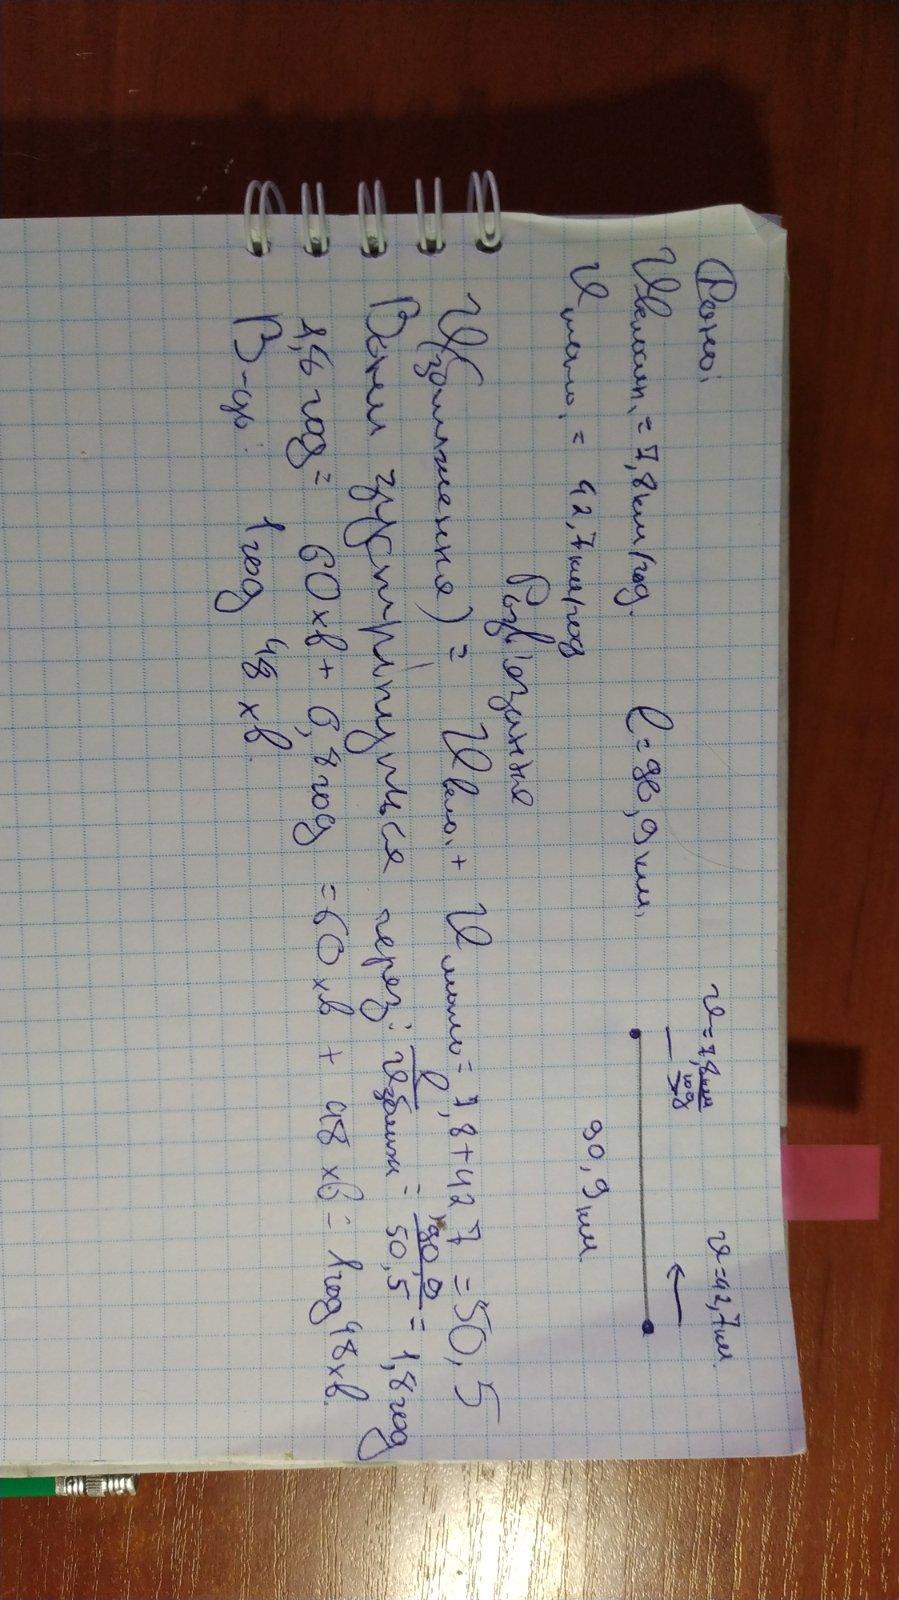 Дано:
v=7,8км/год
v=42,7км
Vвелосип.=7,8км/год. l=90,9км.
Vмото. = 42,7км/год
90,9км
Розв'язання
V(зближення) = Vвело.+ Vмото=7,8+42,7=50,5
Вони зустрінуться через: l/Vзближ = 90,9/50,5 = 1,8год
1,8 год= 60хв+ 0,8год =60хв + 48 хв= 1год 48хв.
В-дь: 1год 48 хв.